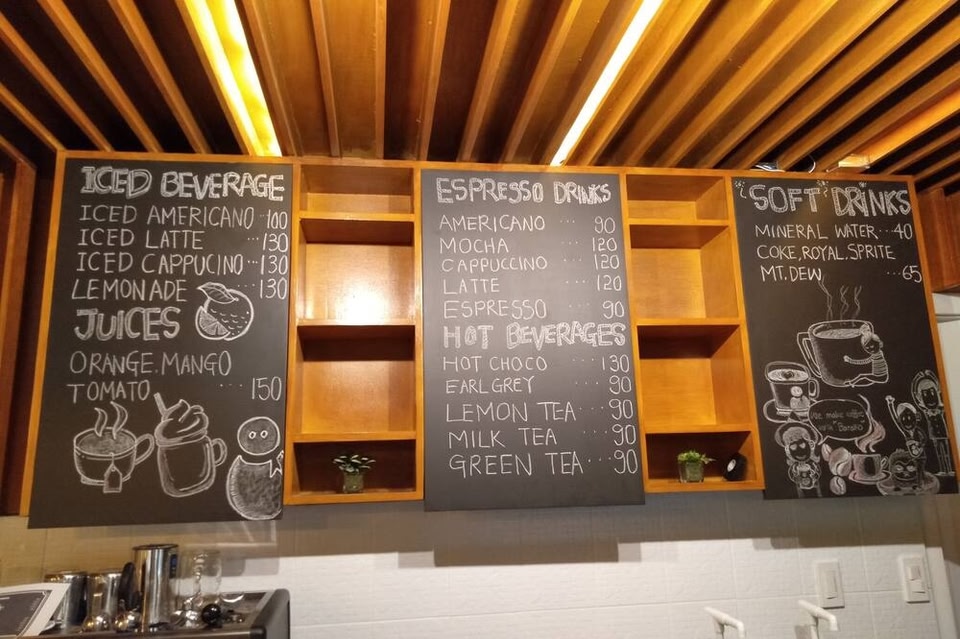 ICED BEVERAGE
ICED AMERICANO ·· 100
ICED LATTE ··· 130
ICED CAPPUCINO ·· 130
LEMONADE ··· 130
JUICES
ORANGE. MANGO
TOMATO ··· 150
ESPRESSO DRINKS
AMERICANO 90
MOCHA ··· 120
CAPPUCCINO ··· 120
LATTE ··· 120
ESPRESSO ··· 90
HOT BEVERAGES
HOT CHOCO ··· 130
EARL GREY ··· 90
LEMON TEA ··· 90
MILK TEA ··· 90
GREEN TEA ··· 90
SOFT DRINKS
MINERAL WATER ·· 40
COKE, ROYAL, SPRITE
MT. DEW ··· 65
We make coffee
with